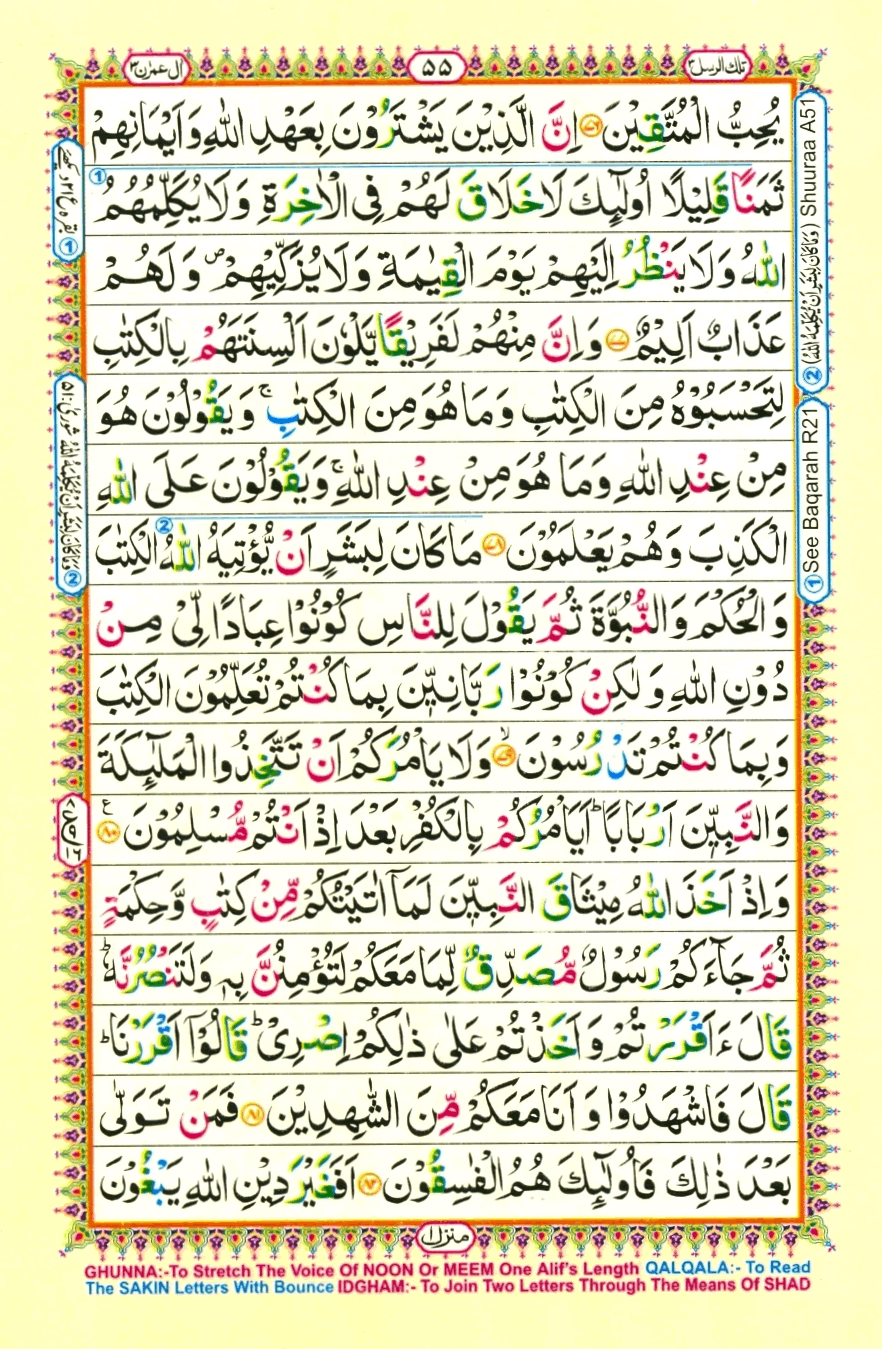 تلك الرسل ٣
۵۵
ال عمرٰن ٣
يُحِبُّ الْمُتَّقِيْنَ ﴿٧٦﴾ اِنَّ الَّذِيْنَ يَشْتَرُوْنَ بِعَهْدِ اللّٰهِ وَاَيْمَانِهِمْ
ثَمَنًا قَلِيْلًا اُولٰٓئِكَ لَا خَلَاقَ لَهُمْ فِى الْاٰخِرَةِ وَلَا يُكَلِّمُهُمُ ①
اللّٰهُ وَلَا يَنْظُرُ اِلَيْهِمْ يَوْمَ الْقِيٰمَةِ وَلَا يُزَكِّيْهِمْ ۖ وَلَهُمْ
عَذَابٌ اَلِيْمٌ ﴿٧٧﴾ وَاِنَّ مِنْهُمْ لَفَرِيْقًا يَّلْوٗنَ اَلْسِنَتَهُمْ بِالْكِتٰبِ
لِتَحْسَبُوْهُ مِنَ الْكِتٰبِ وَمَا هُوَ مِنَ الْكِتٰبِ ۚ وَيَقُوْلُوْنَ هُوَ
مِنْ عِنْدِ اللّٰهِ وَمَا هُوَ مِنْ عِنْدِ اللّٰهِ ۚ وَيَقُوْلُوْنَ عَلَى اللّٰهِ
الْكَذِبَ وَهُمْ يَعْلَمُوْنَ ﴿٧٨﴾ مَا كَانَ لِبَشَرٍ اَنْ يُّؤْتِيَهُ ② اللّٰهُ الْكِتٰبَ
وَالْحُكْمَ وَالنُّبُوَّةَ ثُمَّ يَقُوْلَ لِلنَّاسِ كُوْنُوْا عِبَادًا لِّىْ مِنْ
دُوْنِ اللّٰهِ وَلٰكِنْ كُوْنُوْا رَبّٰنِيّٖنَ بِمَا كُنْتُمْ تُعَلِّمُوْنَ الْكِتٰبَ
وَبِمَا كُنْتُمْ تَدْرُسُوْنَ ﴿٧٩﴾ ۙ وَلَا يَاْمُرَكُمْ اَنْ تَتَّخِذُوا الْمَلٰٓئِكَةَ
وَالنَّبِيّٖنَ اَرْبَابًا ؕ اَيَاْمُرُكُمْ بِالْكُفْرِ بَعْدَ اِذْ اَنْتُمْ مُّسْلِمُوْنَ ﴿٨٠﴾ ع
وَاِذْ اَخَذَ اللّٰهُ مِيْثَاقَ النَّبِيّٖنَ لَمَآ اٰتَيْتُكُمْ مِّنْ كِتٰبٍ وَّحِكْمَةٍ
ثُمَّ جَآءَكُمْ رَسُوْلٌ مُّصَدِّقٌ لِّمَا مَعَكُمْ لَتُؤْمِنُنَّ بِهٖ وَلَتَنْصُرُنَّهٗ ؕ
قَالَ ءَاَقْرَرْتُمْ وَاَخَذْتُمْ عَلٰى ذٰلِكُمْ اِصْرِىْ ؕ قَالُوْٓا اَقْرَرْنَا ؕ
قَالَ فَاشْهَدُوْا وَاَنَا مَعَكُمْ مِّنَ الشّٰهِدِيْنَ ﴿٨١﴾ فَمَنْ تَوَلّٰى
بَعْدَ ذٰلِكَ فَاُولٰٓئِكَ هُمُ الْفٰسِقُوْنَ ﴿٨٢﴾ اَفَغَيْرَ دِيْنِ اللّٰهِ يَبْغُوْنَ
② (وَمَا كَانَ لِبَشَرٍ اَنْ يُّكَلِّمَهُ اللّٰهُ) Shuuraa A51
① See Baqarah R21
منزل ١
GHUNNA:-To Stretch The Voice Of NOON Or MEEM One Alif's Length QALQALA:- To Read
The SAKIN Letters With Bounce IDGHAM:- To Join Two Letters Through The Means Of SHAD